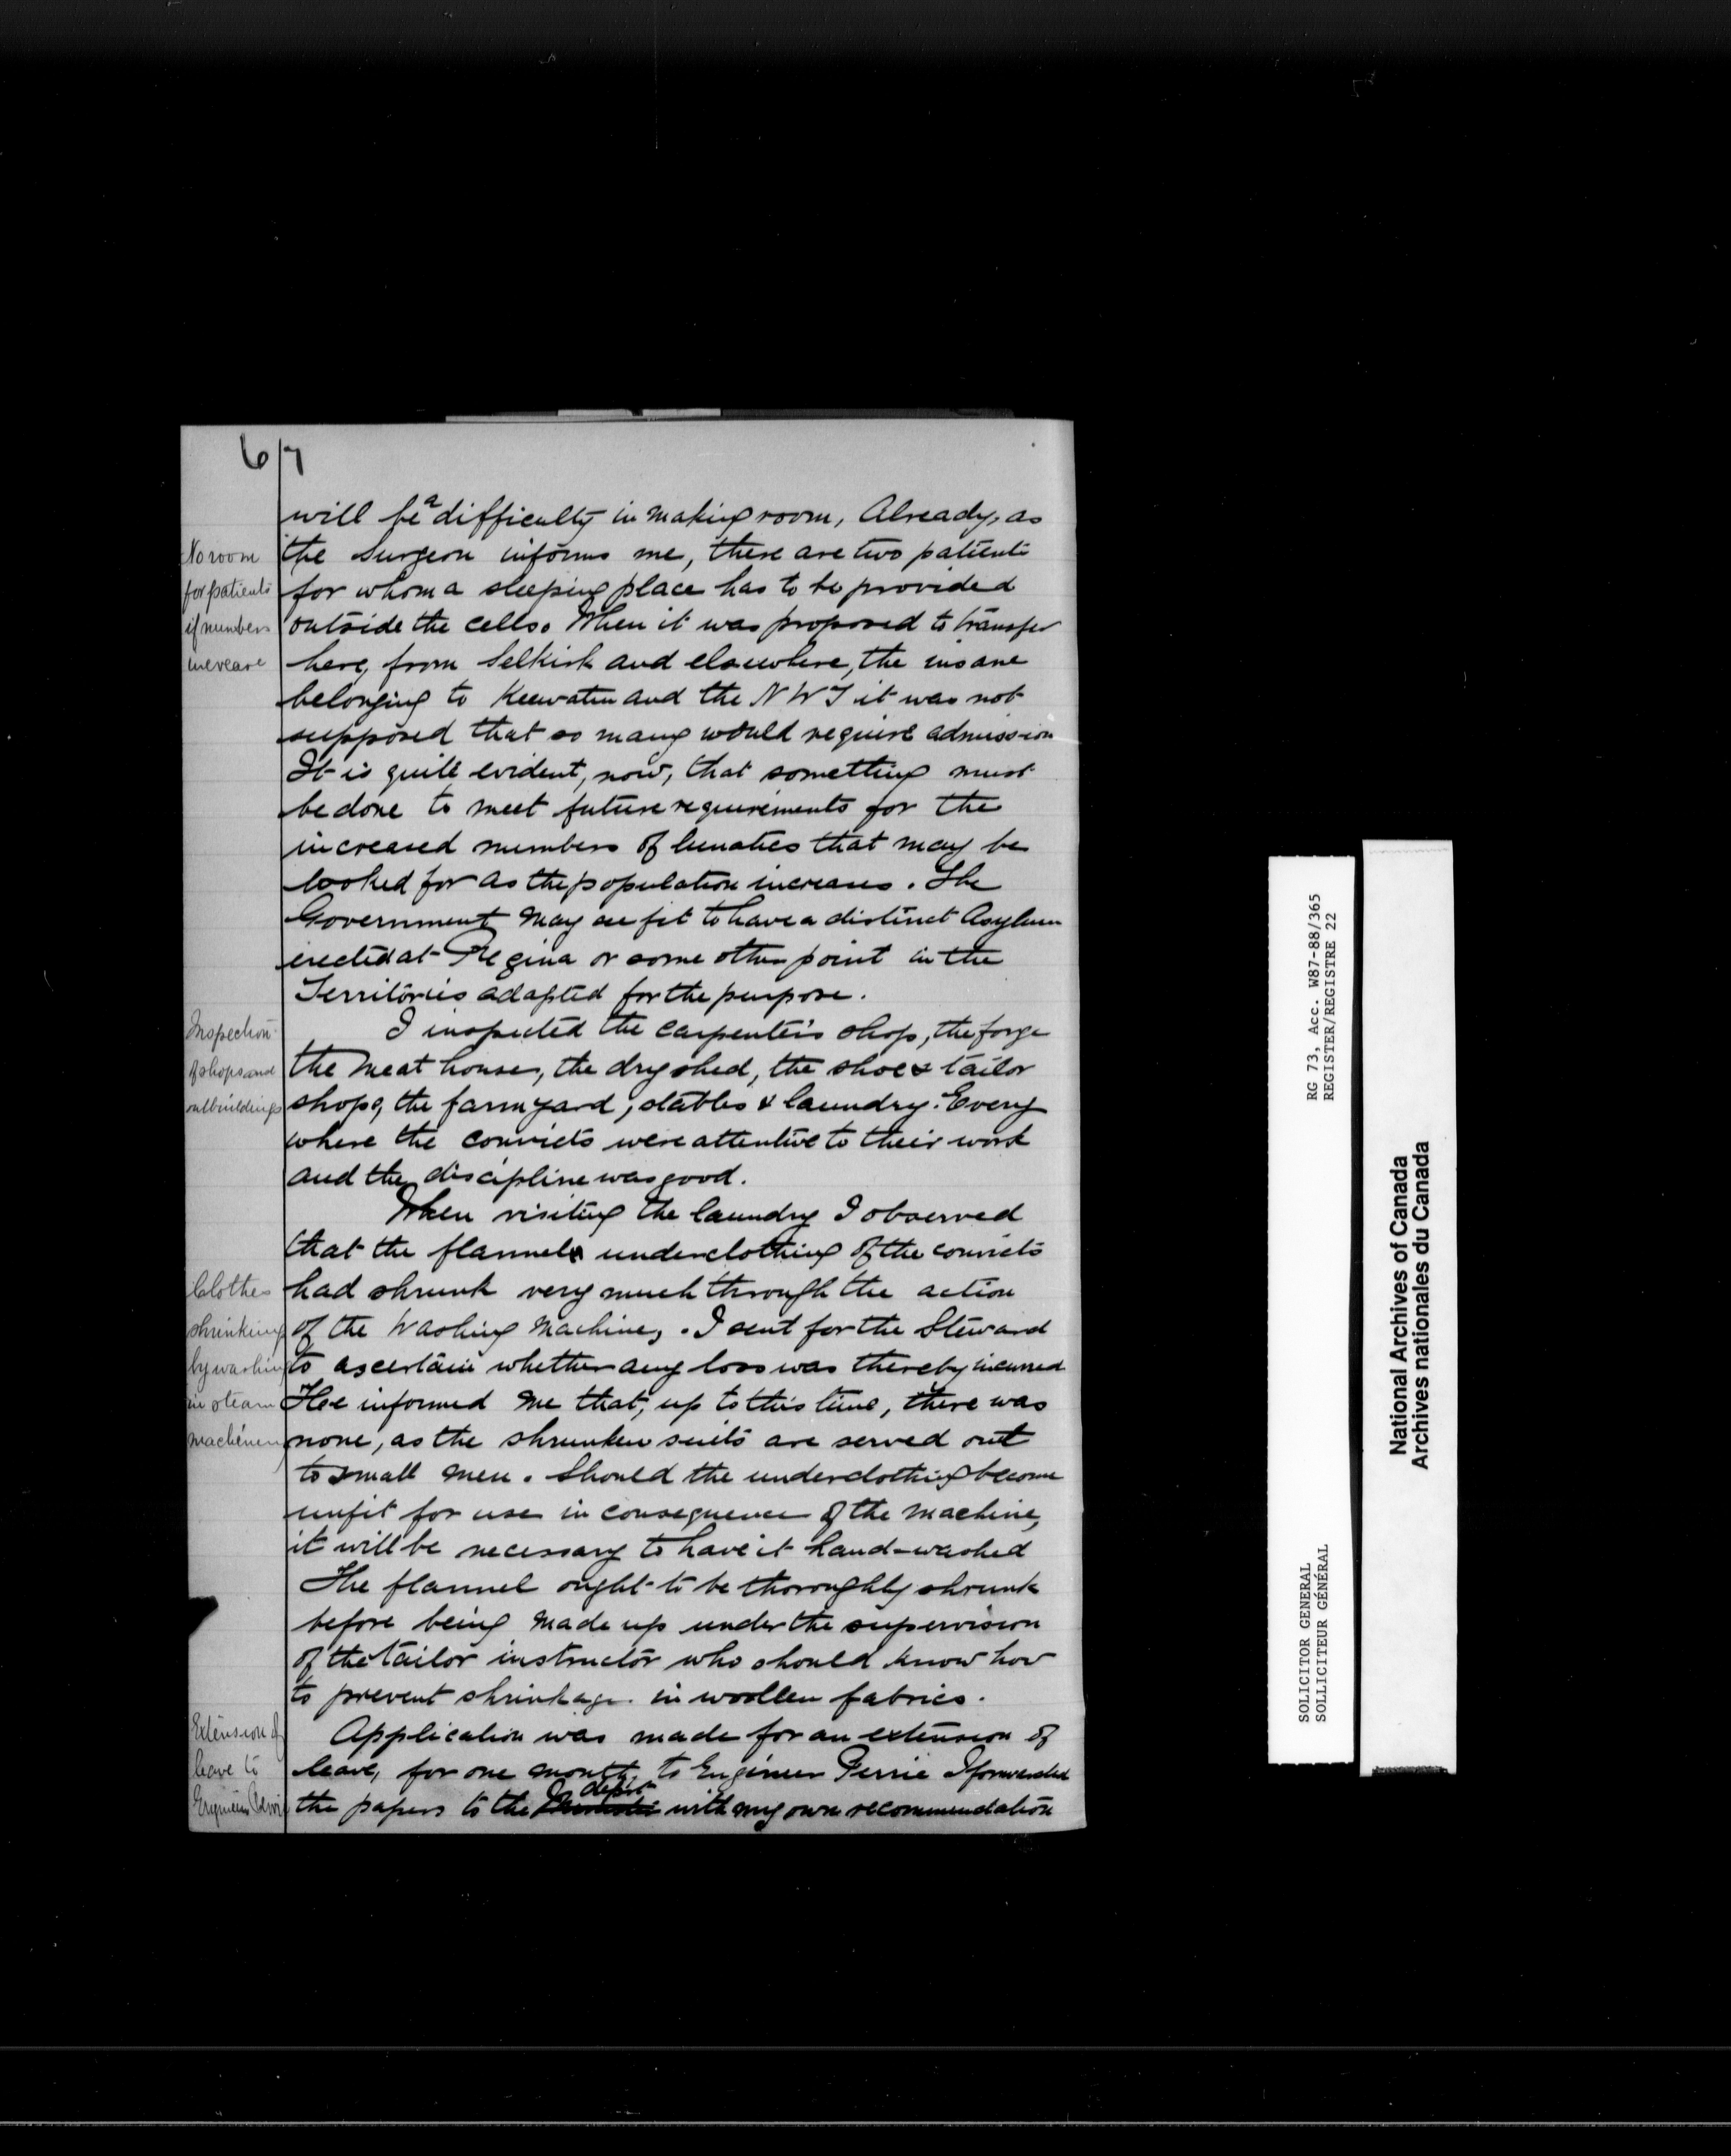 67
will be a difficulty in making room, Already, as
No room
the Surgeon informs me, there are two patients
for patients
for whom a sleeping place has to be provided
if numbers
outside the cells. When it was proposed to transfer
increase
here, from Selkirk and elsewhere, the insane
belonging to Keewatin and the NWT it was not
supposed that so many would require admission
It is quite evident, now, that something must
be done to meet future requirements for the
increased numbers of lunatics that may be
looked for as the population increases. The
Government may see fit to have a distinct Asylum
erected at Regina or some other point in the
Territories adapted for the purpose.
Inspection
I inspected the carpenter's shop, the forge
of shops and
the meat house, the dry shed, the shoe & tailor
outbuildings
shops, the farm yard, stables & laundry. Every
where the convicts were attentive to their work
and the discipline was good.
When visiting the laundry I observed
that the flannel underclothing of the convicts
Clothes
had shrunk very much through the action
shrinking
of the Washing Machines. I sent for the Steward
by washing
to ascertain whether any loss was thereby incurred
in steam
He informed me that, up to this time, there was
machinery
none, as the shrunken suits are served out
to small men. Should the underclothing become
unfit for use in consequence of the machine,
it will be necessary to have it hand-washed
The flannel ought to be thoroughly shrunk
before being made up under the supervision
of the tailor instructor who should know how
to prevent shrinkage in woollen fabrics.
Extension of
Application was made for an extension of
leave to
leave, for one month, to Engineer I forwarded
Engineer
the papers to the dept with my own recommendation
RG 73, Acc. W87-88/365
REGISTER/REGISTRE 22
SOLICITOR GENERAL
SOLLICITEUR GÉNÉRAL
National Archives of Canada
Archives nationales du Canada